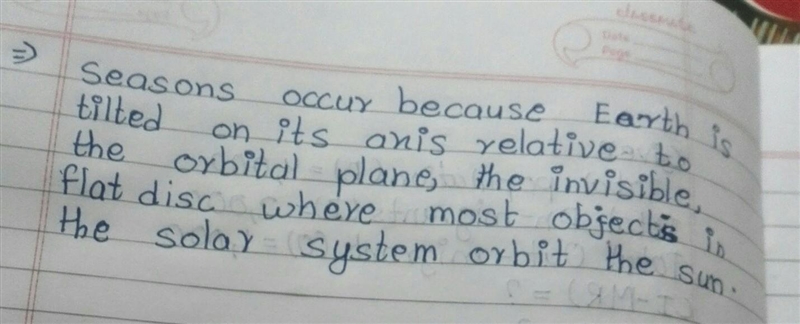 classmate
Date
Page
⇒ Seasons occur because Earth is
tilted on its anis relative to
the orbital plane, the invisible,
flat disc where most objects in
the solar system orbit the sun.